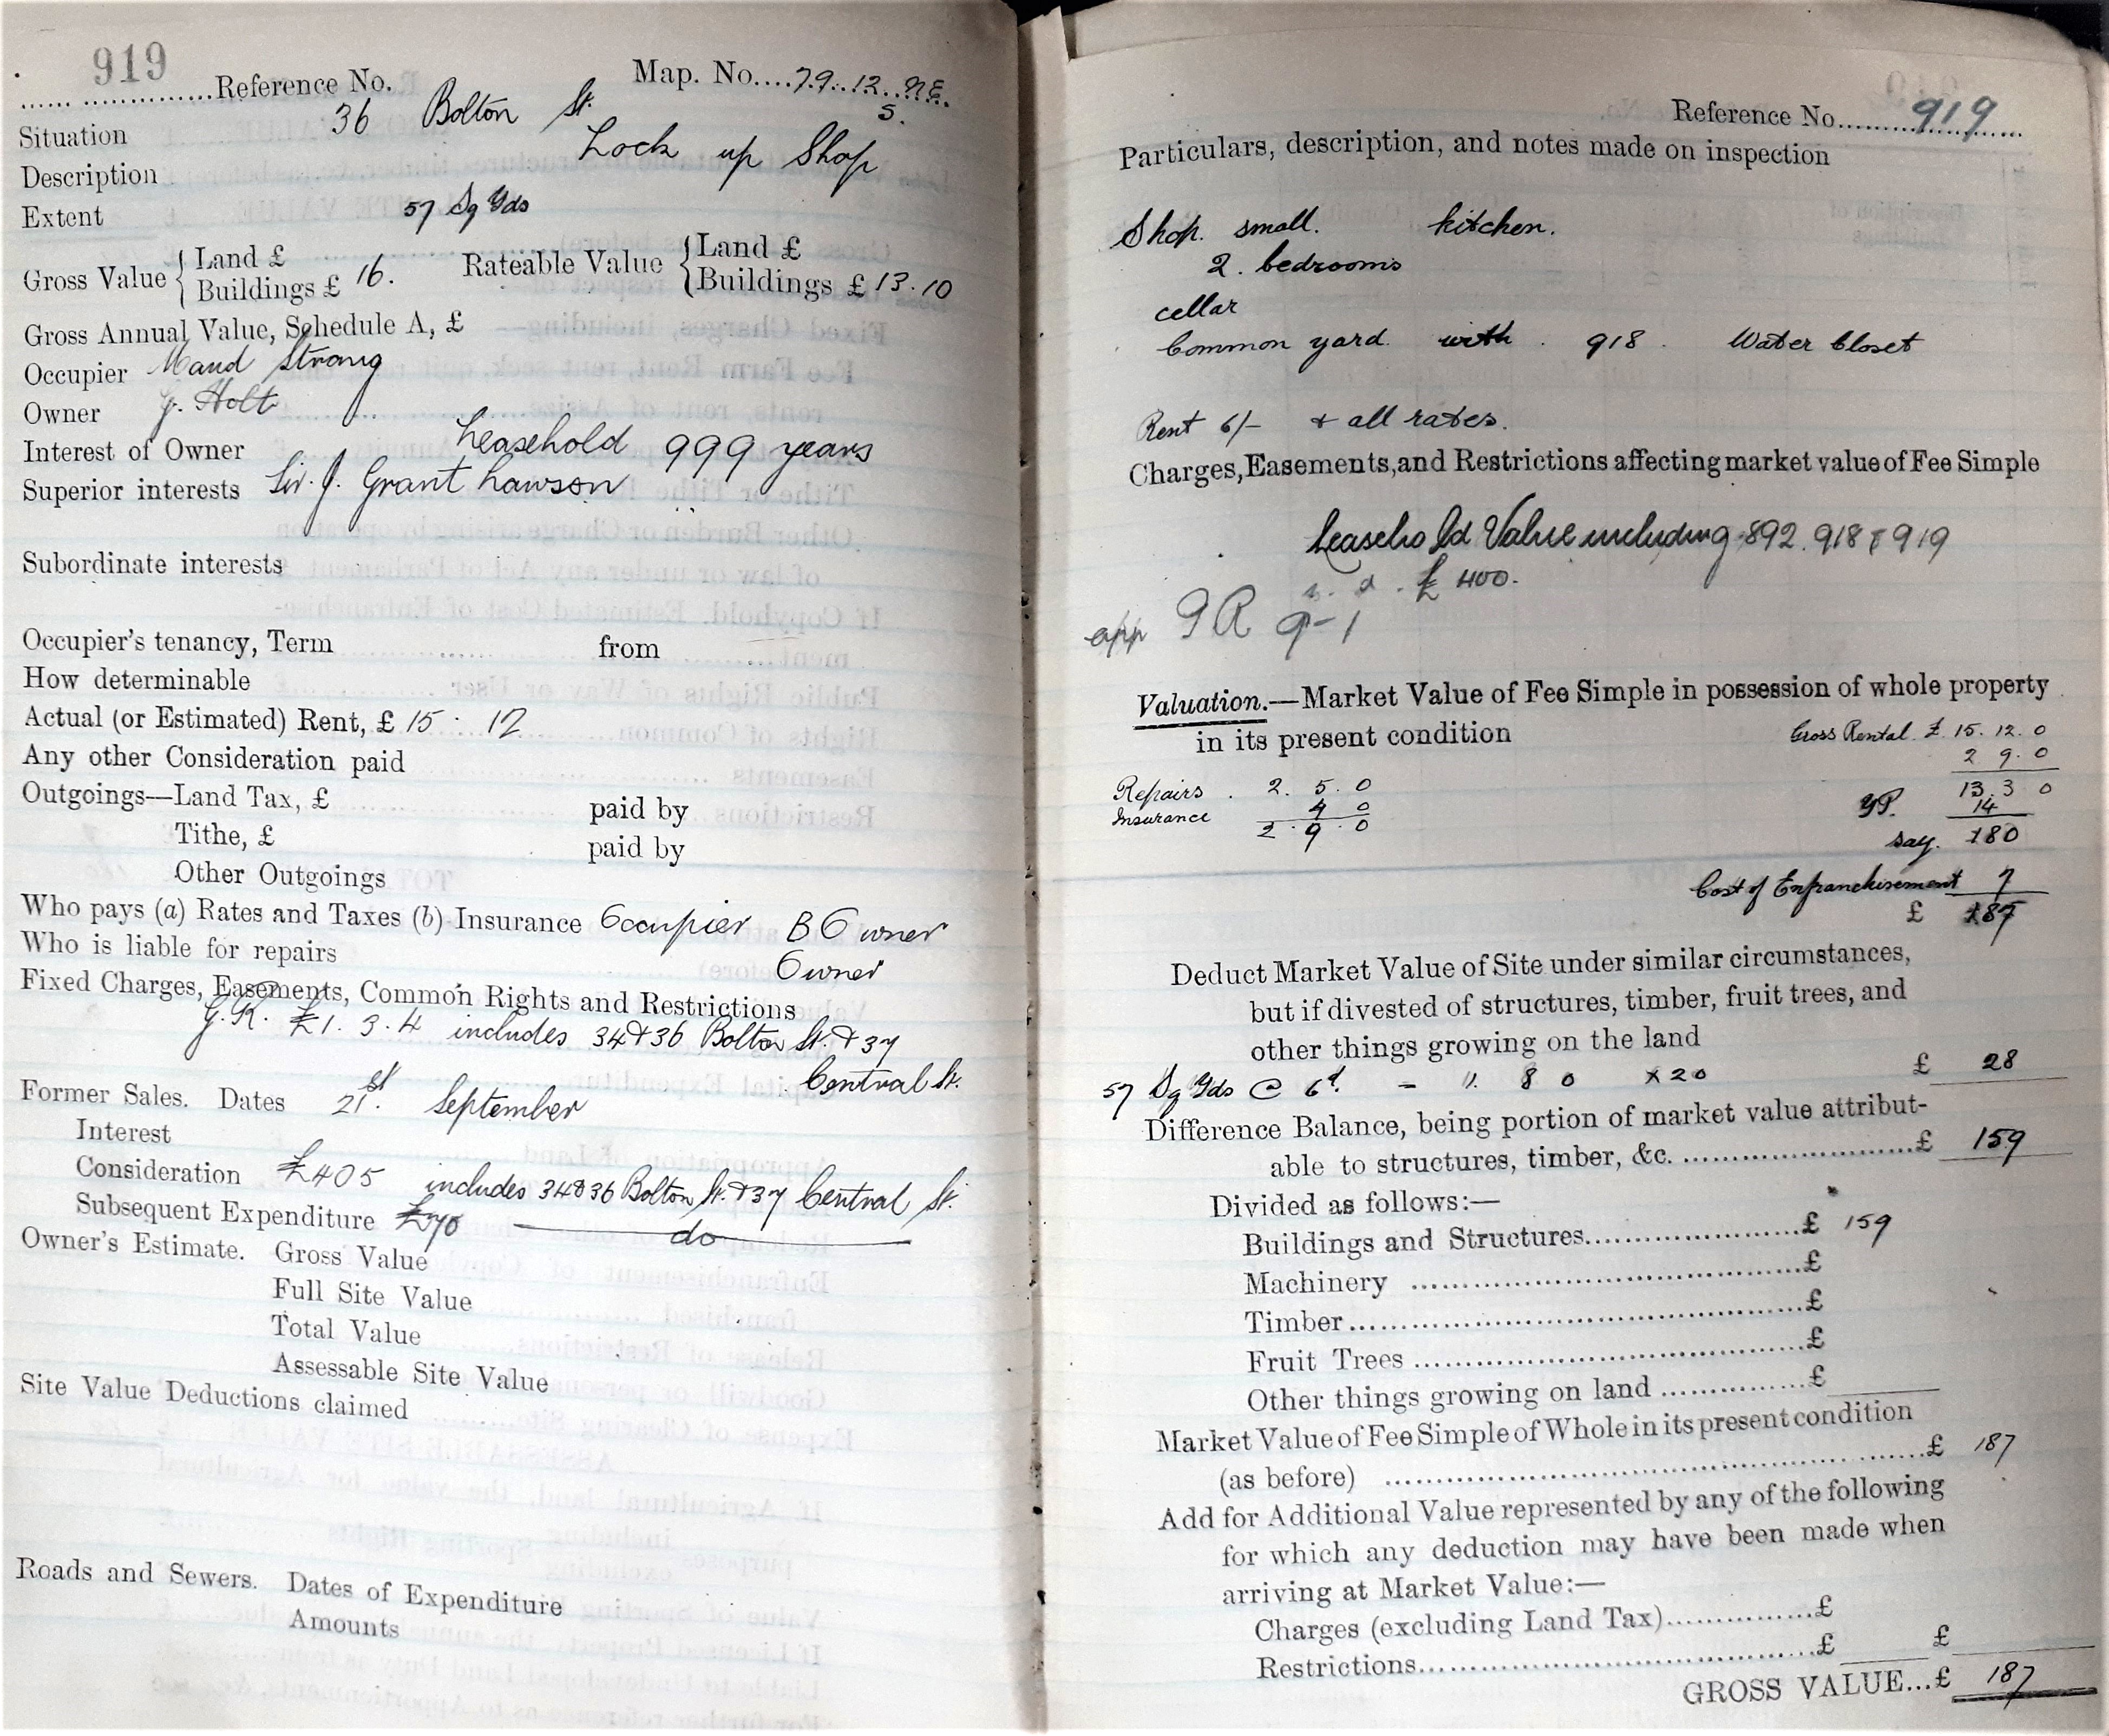 919
Reference No. Map. No. 79. 12. NE
S.
Situation 36 Bolton St.
Description Lock up Shop
Extent 57 Sq Yds
Gross Value { Land £ Rateable Value { Land £
Buildings £ 16. Buildings £ 13.10
Gross Annual Value, Schedule A, £
Occupier Maud Strong
Owner J. Holt
Interest of Owner Leasehold 999 years
Superior interests Sir. J. Grant Lawson
Subordinate interests
Occupier's tenancy, Term from
How determinable
Actual (or Estimated) Rent, £ 15 : 12
Any other Consideration paid
Outgoings—Land Tax, £ paid by
Tithe, £ paid by
Other Outgoings
Who pays (a) Rates and Taxes (b) Insurance Occupier B Owner
Who is liable for repairs Owner
Fixed Charges, Easements, Common Rights and Restrictions
G.R. £1. 3. 4 includes 34 & 36 Bolton St. & 37
Central St.
Former Sales. Dates 21st. September
Interest
Consideration £405 includes 34 & 36 Bolton St. & 37 Central St.
Subsequent Expenditure £70 do
Owner's Estimate. Gross Value
Full Site Value
Total Value
Assessable Site Value
Site Value Deductions claimed
Roads and Sewers. Dates of Expenditure
Amounts
Reference No. 919
Particulars, description, and notes made on inspection
Shop. small. kitchen.
2. bedrooms
cellar
Common yard. with. 918. Water Closet
Rent 6/- + all rates.
Charges, Easements, and Restrictions affecting market value of Fee Simple
Leasehold Value including 892. 918 & 919
£ 400.
app GR 9-1
Valuation.—Market Value of Fee Simple in possession of whole property
in its present condition
Gross Rental. £ 15. 12. 0
2 9. 0
Repairs . 2. 5. 0
13. 3 0
Insurance 4 0
YP. 14
2. 9. 0
say. 180
Cost of Enfranchisement 7
£ 187
Deduct Market Value of Site under similar circumstances,
but if divested of structures, timber, fruit trees, and
other things growing on the land
57 Sq Yds @ 6d. = 1. 8 0 x 20 £ 28
Difference Balance, being portion of market value attribut-
able to structures, timber, &c. £ 159
Divided as follows:—
Buildings and Structures £ 159
Machinery £
Timber £
Fruit Trees £
Other things growing on land £
Market Value of Fee Simple of Whole in its present condition
(as before) £ 187
Add for Additional Value represented by any of the following
for which any deduction may have been made when
arriving at Market Value:—
Charges (excluding Land Tax) £
Restrictions £ £
GROSS VALUE...£ 187